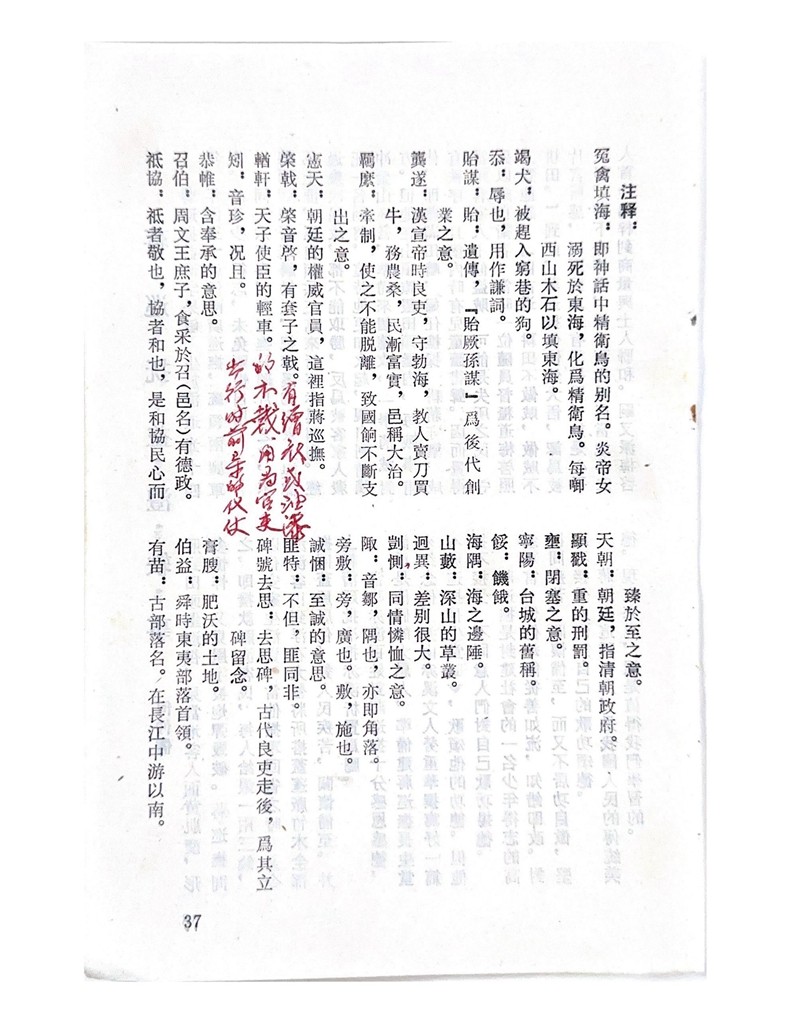 注释：
冤禽填海：即神話中精衛鳥的别名。炎帝女
溺死於東海，化爲精衛鳥。每啣
西山木石以填東海。
竭犬：被趕入窮巷的狗。
忝：辱也，用作謙詞。
貽謀：貽：遺傳，『貽厥孫謀』爲後代創
業之意。
龔遂：漢宣帝時良吏，守勃海，教人賣刀買
牛，務農桑，民漸富實，邑稱大治。
羈縻：牽制，使之不能脱離，致國餉不斷支
出之意。
憲天：朝廷的權威官員，這裡指蔣巡撫。
棨戟：棨音啓，有套子之戟。有繒衣或油漆
的木戟，用为官吏
出行时前导的仪仗
輶軒：天子使臣的輕車。
矧：音珍，况且。
恭帷：含奉承的意思。
召伯：周文王庶子，食采於召（邑名）有德政。
祗協：祗者敬也，協者和也，是和協民心而
臻於至之意。
天朝：朝廷，指清朝政府。
顯戳：重的刑罰。
壅：閉塞之意。
寧陽：台城的舊稱。
餒：饑餓。
海隅：海之邊陲。
山藪：深山的草叢。
迥異：差别很大。
剴惻：同情憐恤之意。
陬：音鄒，隅也，亦即角落。
旁敷：旁，廣也。敷，施也。
誠悃：至誠的意思。
匪特：不但，匪同非。
碑號去思：去思碑，古代良吏走後，爲其立
碑留念。
膏腴：肥沃的土地。
伯益：舜時東夷部落首領。
有苗：古部落名。在長江中游以南。
37